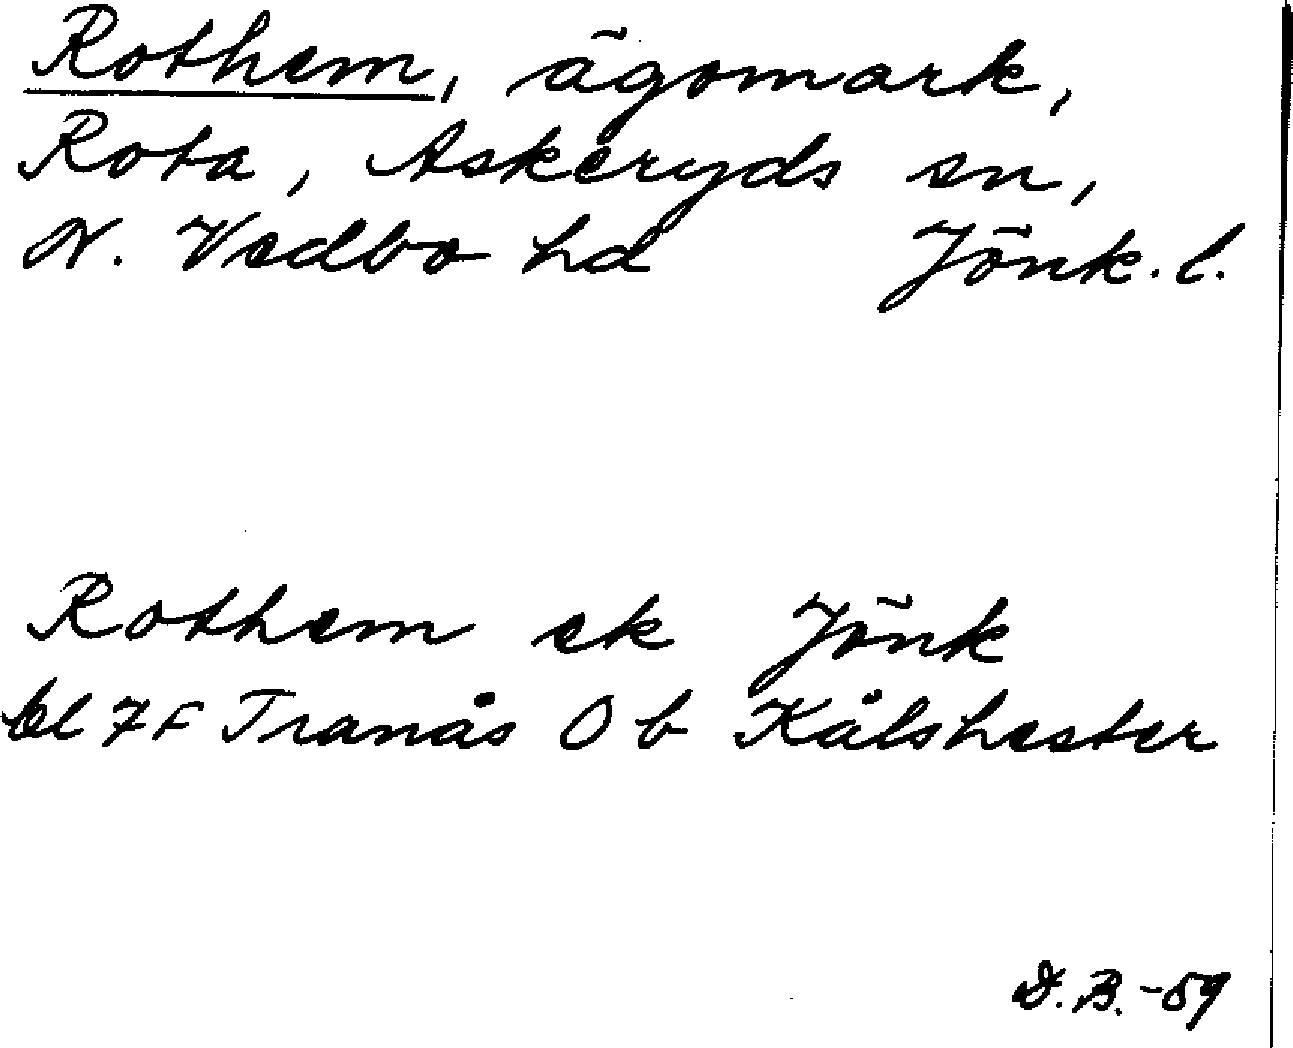 Rothem, ägomark,
Rota, Askeryds sn,
N. Vedbo hd Jönk. l.
Rothem ek Jönk
bl 7F Tranås Ob Kålshester
D.B.-59